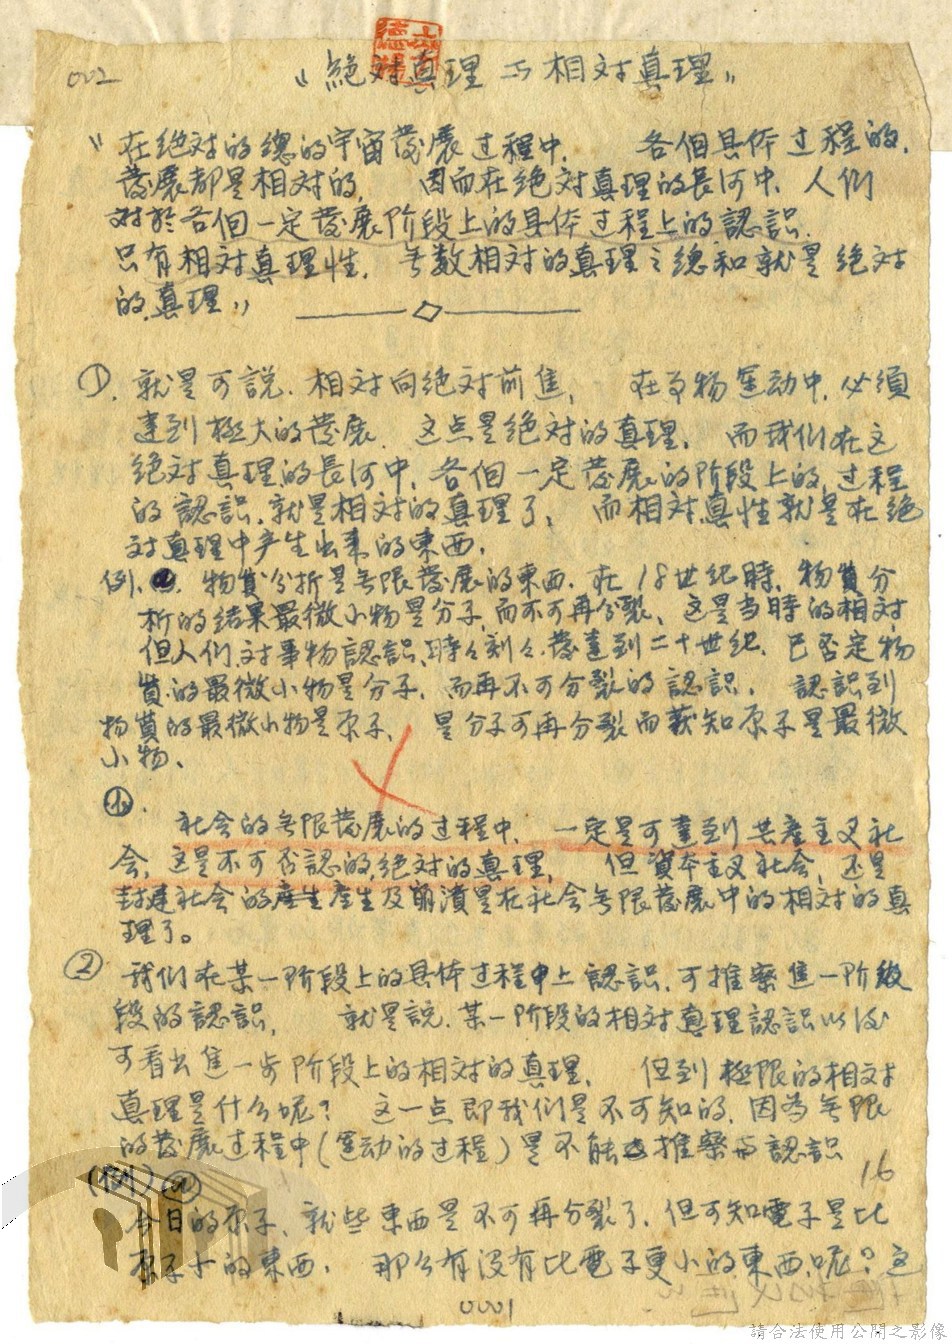 002
〝絕对真理与相対真理〞
〝在绝对的總的宇宙發展过程中， 各個具体过程的，
發展都是相对的， 因而在绝对真理的長河中，人們
对於各個一定發展阶段上的具体过程上的認識，
只有相对真理性，無数相对的真理之總和就是绝对
的真理〞
①．就是可說．相对向绝对前進， 在事物運动中，必須
達到極大的發展，这点是绝对的真理， 而我們在这
绝对真理的長河中，各個一定發展的阶段上的，过程
的認識，就是相对的真理了， 而相对真性就是在绝
对真理中产生出来的東西，
例．物質分析是無限發展的東西．在18世紀時，物質分
析的结果最微小物是分子，而不可再分裂，这是当時的相対，
但人们，对事物認識，時々刻々，發達到二十世紀，已否定物
質的最微小物是分子，而再不可分裂的認識， 認識到
物質的最微小物是原子， 是分子可再分裂而获知原子是最微
小物，
社会的無限發展的过程中， 一定是可達到共產主义社
会，这是不可否認的，绝对的真理， 但資本主义社会，还是
封建社会的產生產生及崩潰是在社会無限發展中的相对的真
理了。
② 我們在某一阶段上的具体过程中上認識，可推察進一阶級
段的認識， 就是說，某一阶段的相对真理認識以後
可看出進一步阶段上的相对的真理， 但到極限的相対
真理是什么呢？ 这一点即我們是不可知的，因為無限
的發展过程中(運动的过程)是不能推察与認識
16
(例)ⓐ
今日的原子，就些東西是不可再分裂了，但可知電子是比
原子小的東西， 那么有没有比電子更小的東西，呢？这
0001
請合法使用公開之影像